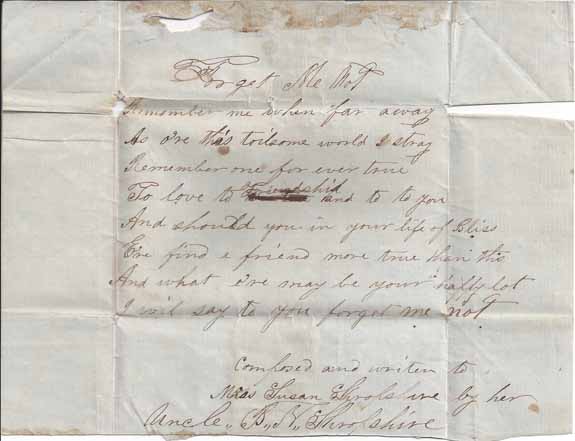 Forget Me Not
Remember me when far away
As o're this toilsome world I stray
Remember one for ever true
To love to Friendship and to to you
And should you in your life of Bliss
Ere find a friend more true than this
And what e're may be your happy lot
I wil say to you forget me not
Composed and writen to
Miss Susan Shropshire by her
Uncle, B, N, Shropshire